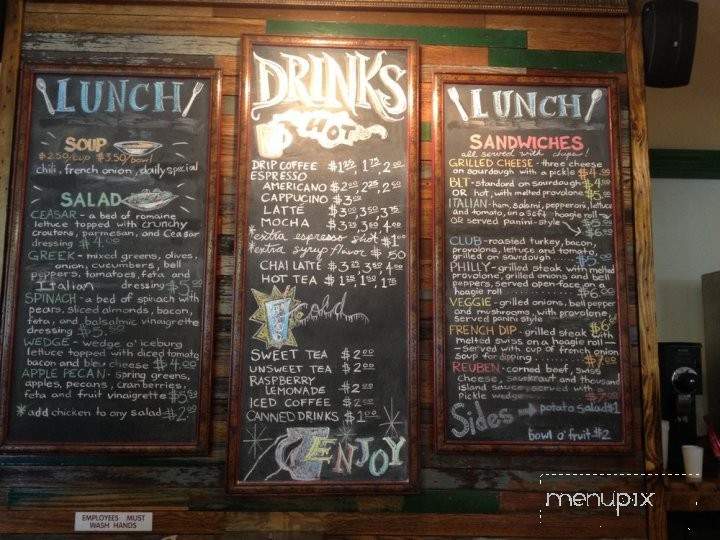 LUNCH
SOUP
$2.50 cup $3.50 bowl
chili, french onion, daily special
SALAD
CEASAR - a bed of romaine
lettuce topped with crunchy
croutons, parmesan, and Ceasar
dressing $4.00
GREEK - mixed greens, olives,
onion, cucumbers, bell
peppers, tomatoes, feta and
Italian dressing $5.00
SPINACH - a bed of spinach with
pears, sliced almonds, bacon,
feta, and balsamic vinaigrette
dressing
WEDGE - wedge o' iceburg
lettuce topped with diced tomato,
bacon and bleu cheese $4.00
APPLE PECAN - spring greens,
apples, pecans, cranberries,
feta and fruit vinaigrette
*add chicken to any salad $2.00
DRINKS
HOT
DRIP COFFEE 1.75, 2.00
ESPRESSO
AMERICANO $2.00 2.25 2.50
CAPPUCINO $3.00
LATTE $3.00 3.50 3.75
MOCHA $3.25 3.60 4.00
*extra espresso shot $1.00
*extra syrup flavor $.50
CHAI LATTE $3.25 3.60 4.00
HOT TEA $1.25 1.50 1.75
Cold
SWEET TEA $2.00
UNSWEET TEA $2.00
RASPBERRY
LEMONADE $2.00
ICED COFFEE $2.00
CANNED DRINKS $1.00
ENJOY
LUNCH
SANDWICHES
all served with chips!
GRILLED CHEESE - three cheese
on sourdough with a pickle $4.00
BLT - standard on sourdough
OR hot, with melted provolone
ITALIAN - ham, salami, pepperoni, lettuce
and tomato, on a soft hoagie roll
OR served panini-style
CLUB - roasted turkey, bacon,
provolone, lettuce and tomato,
grilled on sourdough
PHILLY - grilled steak with melted
provolone, grilled onions and bell
peppers, served open-face on a
hoagie roll $6.00
VEGGIE - grilled onions, bell pepper
and mushrooms, with provolone
served panini style
FRENCH DIP - grilled steak with
melted swiss on a hoagie roll -
- served with cup of french onion
soup for dipping
REUBEN - corned beef, swiss
cheese, saurkraut and thousand
island sauce - served with a
pickle wedge
Sides potato salad $1
bowl o' fruit $2
EMPLOYEES MUST
WASH HANDS
menupix